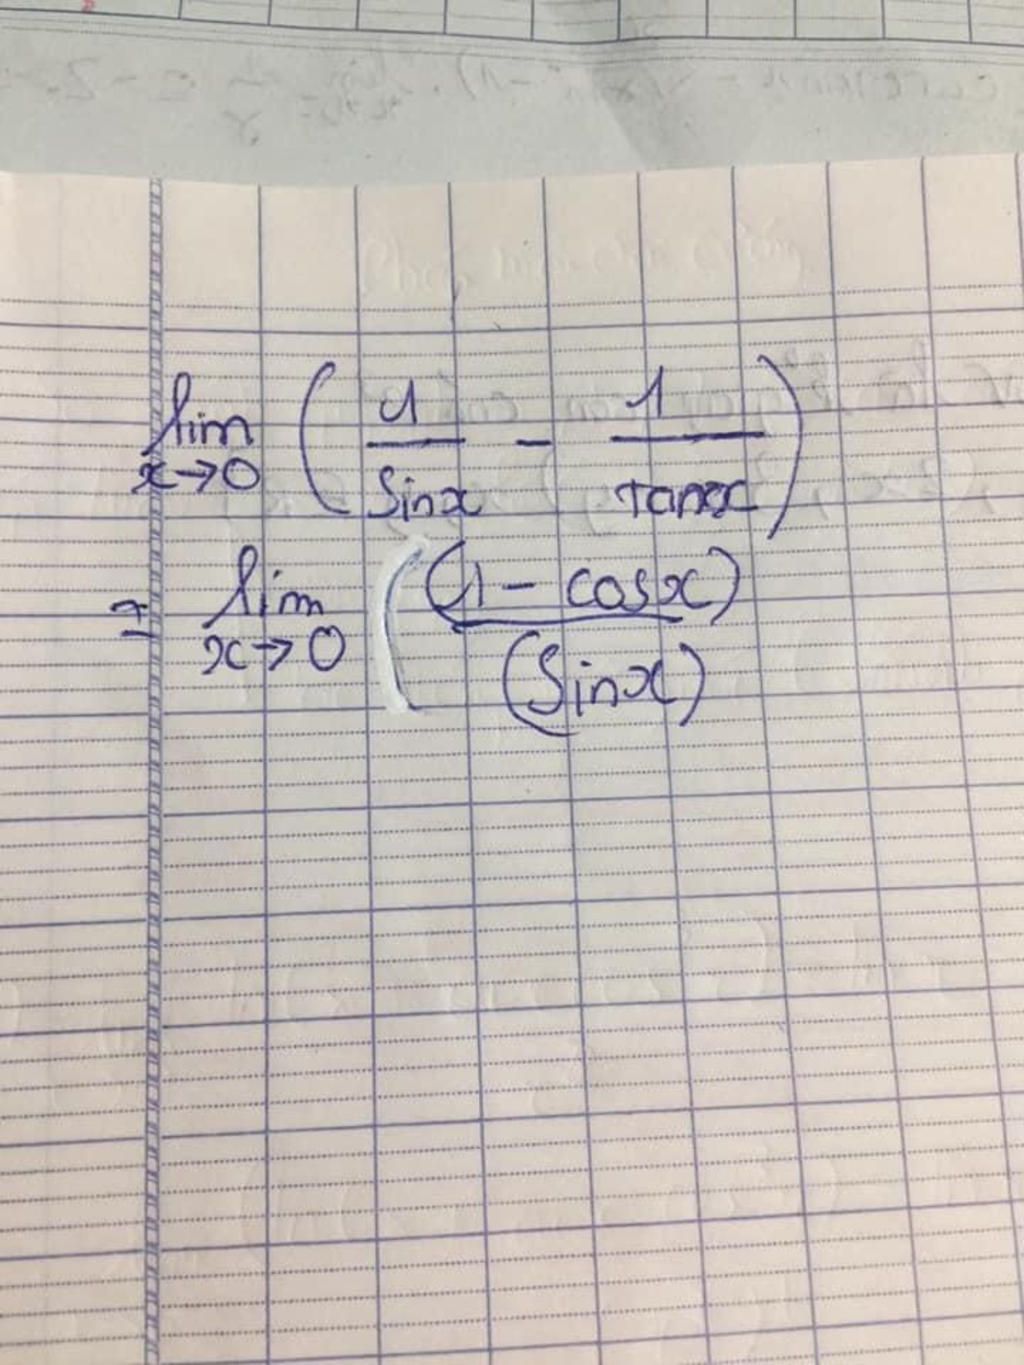 lim x→0 ( 1/sinx - 1/tanx )
= lim x→0 ( (1 - cosx)/(sinx)